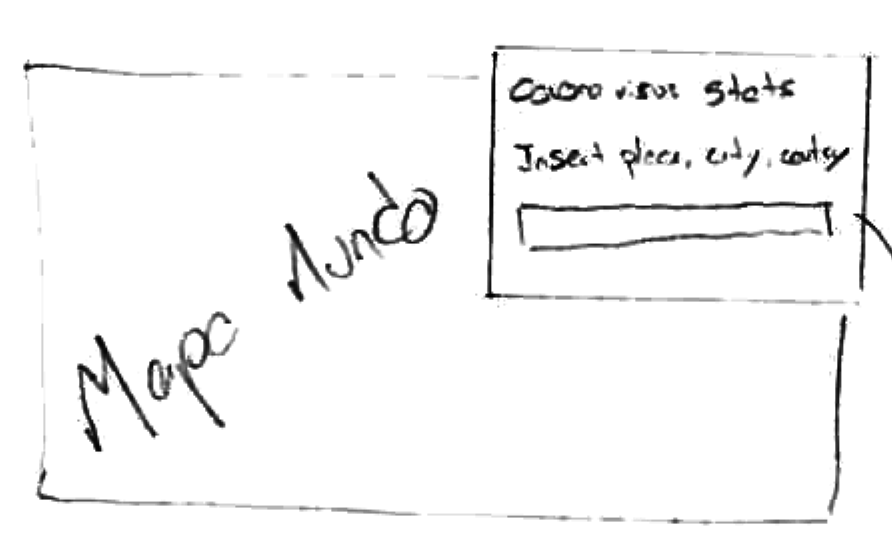 Corona virus stats
Insert place, city, country
Mapa Mundo